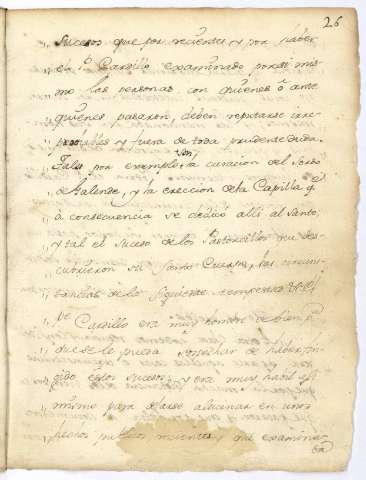 26
„ Sucesos que por recientes y por haber
„ el P.e Carrillo examinado por sí mis
„ mo las personas con quienes ò ante
„ quienes pasaron, deben reputarse irre
„ y fuera de toda prudente duda.
son,
„ Tales por exemplo la curacion del Sordo
„ de Galende, y la ereccion de la Capilla q.e
„ à consecuencia se dedicó alli al Santo,
„ y tal el Suceso de los Pastorcillos que des
„ cubrieron su Santo Cuerpo, las circuns
„ tancias de la siguiente tempestad &c. El
„ P.e Carrillo era muy hombre de bien, p.a
„ que se le pueda sospechar de haber fin
„ gido estos sucesos, y era muy habil assi
„ mismo para dexarse alucinar en unos
„ hechos publicos recientes, y que examina
ba